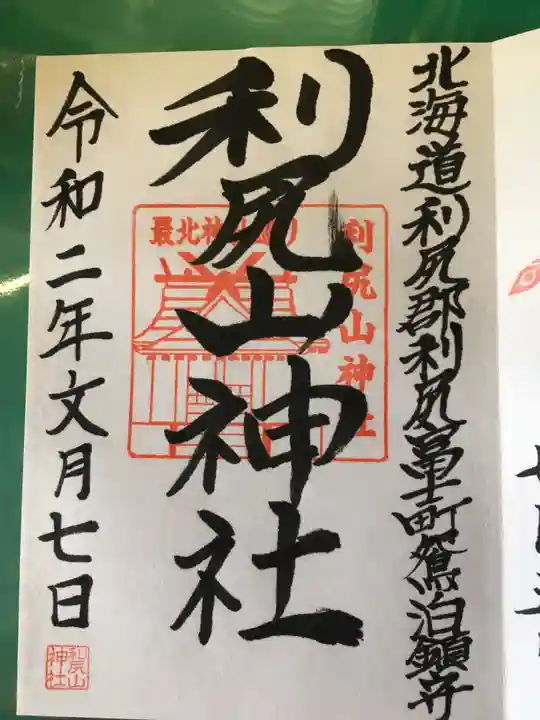 北海道利尻郡利尻富士町鴛泊鎮守
利尻山神社
利尻山神社
最北神
令和二年文月七日
利尻山
神社